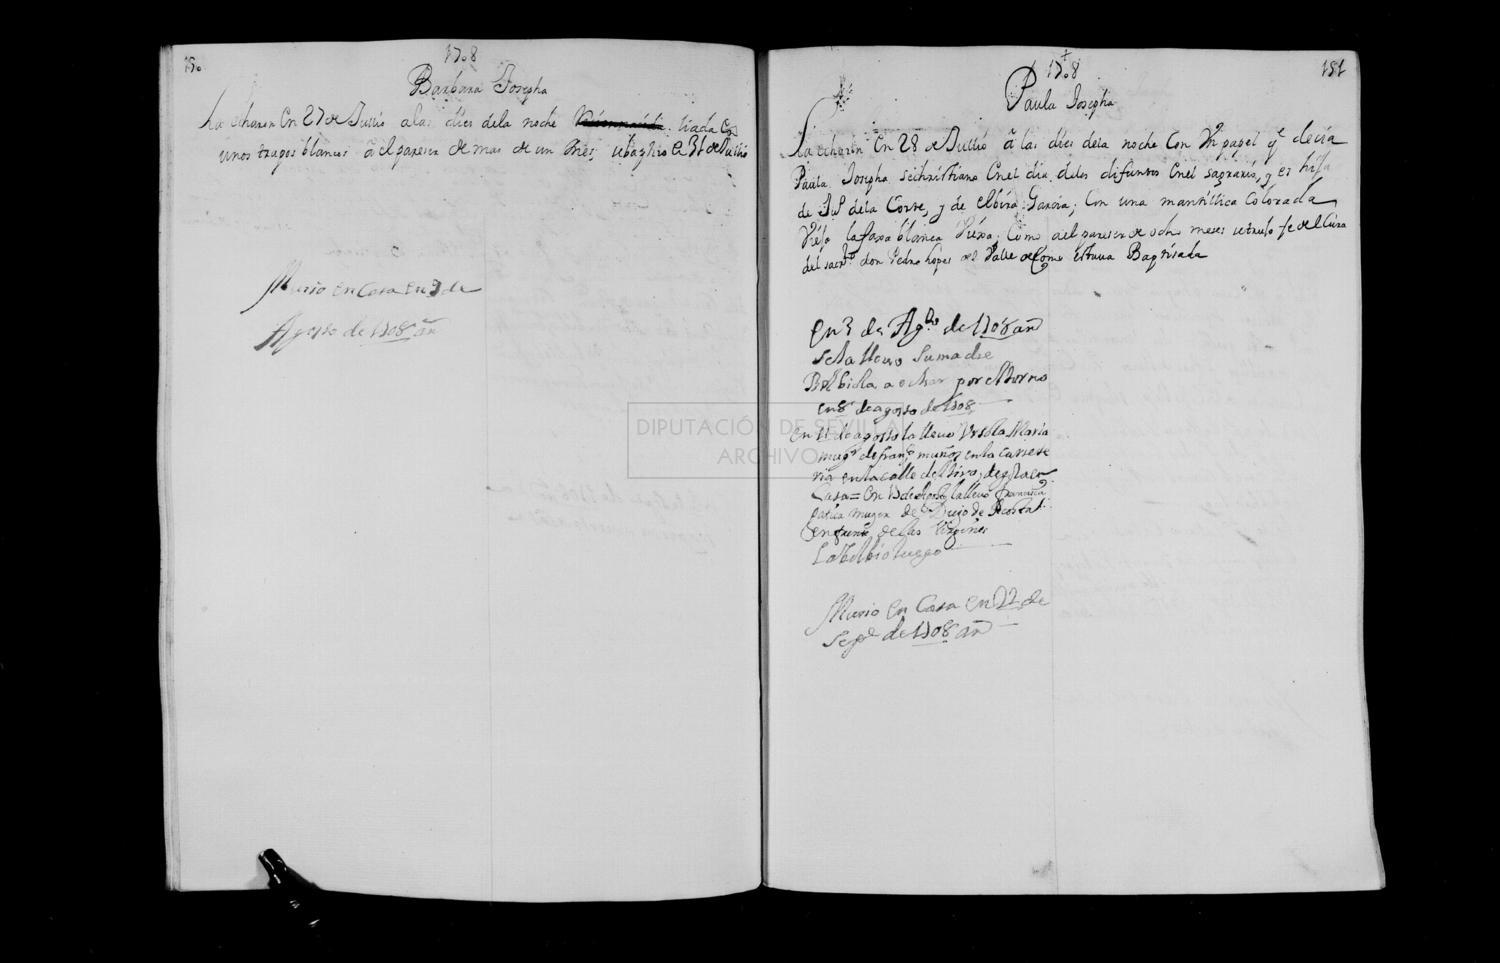 150
1708
Barbara Josepha
La echaron En 27 de Jullio a las dies dela noche liada Con
unos trapos blancos â el pareser de mas de un mes; sebaptiso a 31 de Jullio
Murio en Casa en 9 de
Agosto de 1708 añ
151
1708
Paula Josepha
La echaron En 28 de Jullio â las dies dela noche Con Un papel q̃ decia
Paula Josepha sechristiano Enel dia delos difuntos Enel sagrario, y es hija
de Ju.º dela Torre, y de elbira Garsia; Con una mantillica Colorada
Vieja la faxa blanca Viexa; Como ael pareser de ocho meses se truxo fe del Cura
del sagr.º don Pedro lopes del Valle de Como estava Baptisada
En 3 de Ag.to de 1708 añ
sela llevo su madre
Bolbiola a echar por el torno
en 8 de agosto de 1708
en 11 de agosto la llevo Ursola Maria
mug.r de fran.co muños en la carrete
ria en la calle del
Casa = En 13 de Agosto la llevo francisca
garcia muger de Diego de
enfrente de las Virgines
La bolbio luego
Murio en Casa en 22 de
Sep.e de 1708 añ
DIPUTACIÓN DE SEVILLA
ARCHIVO